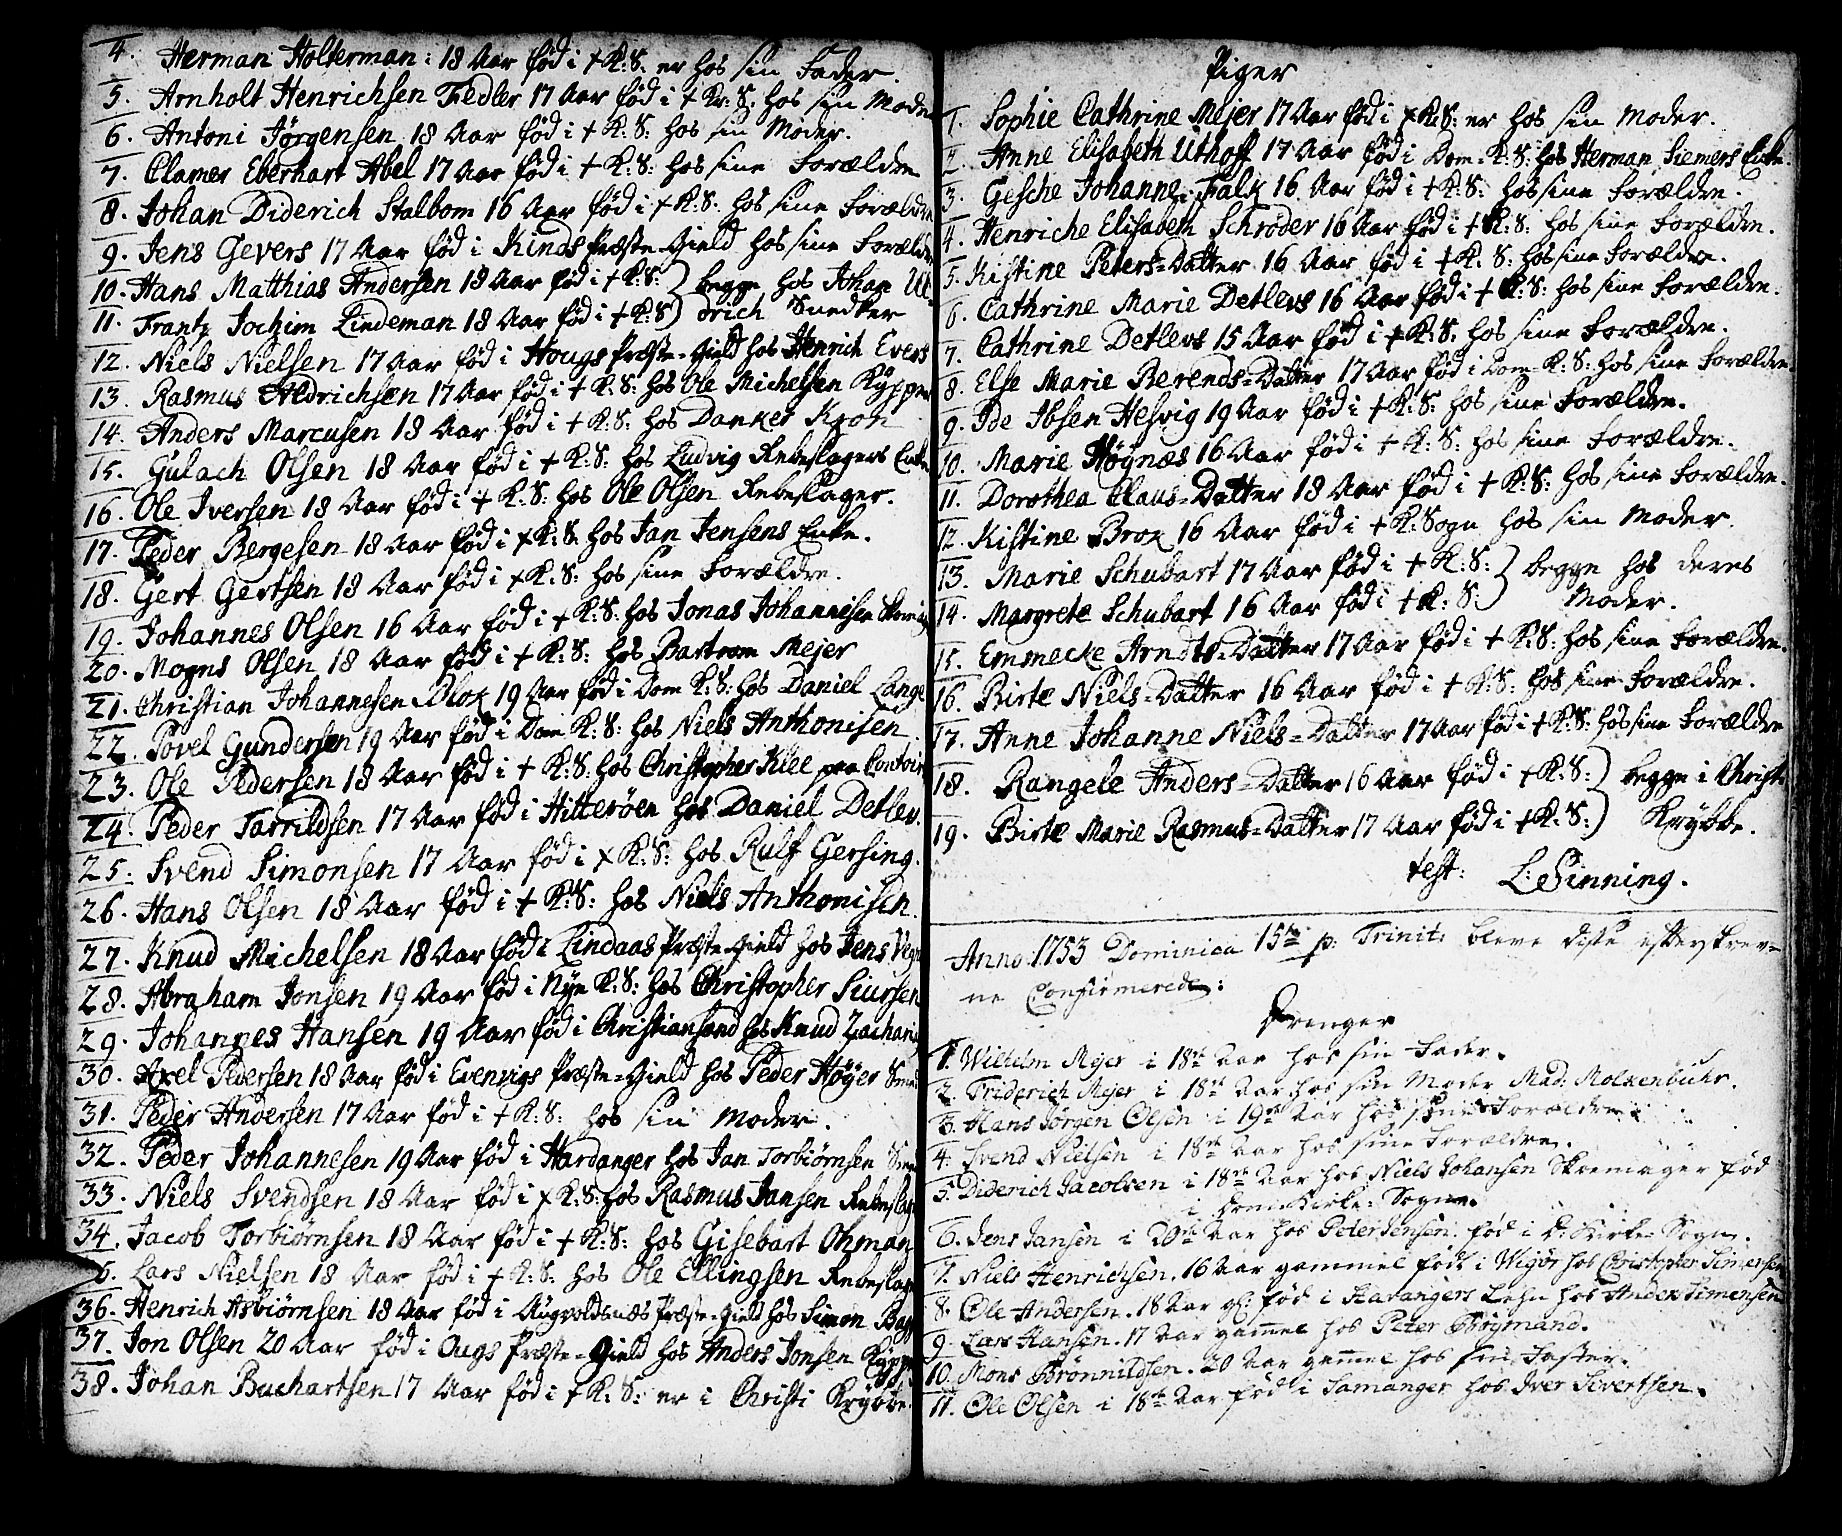 4. Herman Holterman: 18 Aar fød i † K: S. er hos sin Fader.
5. Arnholt Henrichsen Fedler 17 Aar fød i † Kr: S: hos sin Moder
6. Antoni Jørgensen 18 Aar fød i † K: S: hos sin Moder.
7. Clamer Eberhart Abel 17 Aar fød i † K: S: hos sine Forældre
8. Johan Diderich Stalbom 16 Aar fød i † K: S: hos sine Forældre
9. Jens Gevers 17 Aar fød i Kinds Præste-Gield hos sine Forældre
10. Hans Matthias Andersen 18 Aar fød i † K: S: } begge hos Johan Ul-
11. Frantz Jochim Lindeman 18 Aar fød i † K: S } drich Snedker
12. Niels Nielsen 17 Aar fød i Hougs Præste-Gield hos Henrich Evers
13. Rasmus Aldrichsen 17 Aar fød i † K: S: hos Ole Michelsen Kypper
14. Anders Marcusen 18 Aar fød i † K: S: hos Danker Kron
15. Gulach Olsen 18 Aar fød i † K: S: hos Ludvig Rebeslagers Enke
16. Ole Iversen 18 Aar fød i † K: S: hos Ole Olsen Rebeslager.
17. Peder Bergesen 18 Aar fød i † K: S. hos Jan Jensens Enke.
18. Gert Gertsen 18 Aar fød i † K: S: hos sine Forældre.
19. Johannes Olsen 16 Aar fød i † K: S: hos Jonas Johannesen
20. Mogns Olsen 18 Aar fød i † K: S: hos Bartram Mejer
21. Christian Johannesen Blox 19 Aar fød i Dom K: S: hos Daniel Lange
22. Povel Gundersen 19 Aar fød i Dom K: S: hos Niels Anthonisen
23. Ole Pedersen 18 Aar fød i † K: S: hos Christopher Klee paa Contoir
24. Peder Tarrildsen 17 Aar fød i Hitterøen hos Daniel Detlev.
25. Svend Simonsen 17 Aar fød i † K: S: hos Rulf Gersing.
26. Hans Olsen 18 Aar fød i † K: S: hos Niels Anthonisen.
27. Knud Michelsen 18 Aar fød i Lindaas Præste-Gield hos Jens
28. Abraham Jonsen 19 Aar fød i Nye K: S: hos Christopher Siursen
29. Johannes Hansen 19 Aar fød i Christiansand hos Knud Zacharia
30. Axel Pedersen 18 Aar fød i Evenvigs Præste-Gield hos Peder Høyer
31. Peder Andersen 17 Aar fød i † K: S: hos sin Moder.
32. Peder Johannesen 19 Aar fød i Hardanger hos Jan Torbiørnsen
33. Niels Svendsen 18 Aar fød i † K: S: hos Rasmus Jansen Rebeslag
34. Jacob Torbiørnsen 18 Aar fød i † K: S: hos Gisebart Ohman
5. Lars Nielsen 18 Aar fød i † K: S: hos Ole Ellingsen Rebeslage
36. Henrich Asbiørnsen 18 Aar fød i Augvoldsnæs Præste-Gield hos Simon
37. Jon Olsen 20 Aar fød i Augs Præste-Gield hos Anders Jonsen Kyppe
38. Johan Buchartsen 17 Aar fød i † K: S: er i Christi Krybbe.
Piger
1. Sophie Cathrine Mejer 17 Aar fød i † K: S: er hos sin Moder.
2. Anne Elisabeth Uthoff 17 Aar fød i Dom-K: S: hos Herman Siemers Enke
3. Gesche Johanne Falx 16 Aar fød i † K: S: hos sine Forældre.
4. Henriche Elisabeth Schrøder 16 Aar fød i † K: S: hos sine Forældre.
5. Kistine Peters-Datter 16 Aar fød i † K: S: hos sine Forældre.
6. Cathrine Marie Detlevs 16 Aar fød i † K: S: hos sine Forældre.
7. Cathrine Detlevs 15 Aar fød i † K: S: hos sine Forældre.
8. Else Marie Berends-Datter 17 Aar fød i Dom-K: S: hos sine Forældre
9. Ide Ibsen Hesvig 19 Aar fød i † K: S: hos sine Forældre.
10. Marie Høgnæs 16 Aar fød i † K: S: hos sine Forældre.
11. Dorothea Claus-Datter 18 Aar fød i † K: S: hos sine Forældre.
12. Kistine Brox 16 Aar fød i † K: Sogn hos sin Moder.
13. Marie Schubart 17 Aar fød i † K: S: } begge hos deres
14. Margrete Schubart 16 Aar fød i † K: S: } Moder.
15. Emmecke Arndts-Datter 17 Aar fød i † K: S: hos sine Forældre.
16. Birte Niels-Datter 16 Aar fød i † K: S: hos sine Forældre.
17. Anne Johanne Niels-Datter 17 Aar fød i † K: S: hos sine Forældre
18. Rangele Anders-Datter 16 Aar fød i † K: S: } begge i Christi
19. Birte Marie Rasmus-Datter 17 Aar fød i † K: S: } Krybbe.
test: L: Sinning.
Anno 1753 Dominica 15de p: Trinit: bleve disse efterskrev-
ne Confirmerede:
Drenger
1. Wilhelm Mejer i 18de Aar hos sin Fader.
2. Friderich Mejer i 18de Aar hos sin Moder Mad: Molkenbuhr.
3. Hans Jørgen Olsen i 19de Aar hos sine Forældre
4. Svend Nielsen i 18de Aar hos sine Forældre.
5. Diderich Jacobsen i 18de Aar hos Niels Johansen Skoemager fød
i Dom-Kirke-Sogne.
6. Jens Jansen i 20de Aar hos Peter Jensen. fød i D: Kirke Sogn.
7. Niels Henrichsen. 16 Aar gammel født i Wigør hos Christopher Simensen
8. Ole Andersen. 18 Aar gl: fød i Stavangers Lehn hos Anders Simensen
9. Lars Hansen. 17 Aar gammel hos Peter Trogmand.
10. Mons Brønnildsen. 20 Aar gammel hos sin Faster.
11. Ole Olsen i 18de Aar fød i Samanger hos Iver Sivertsen.